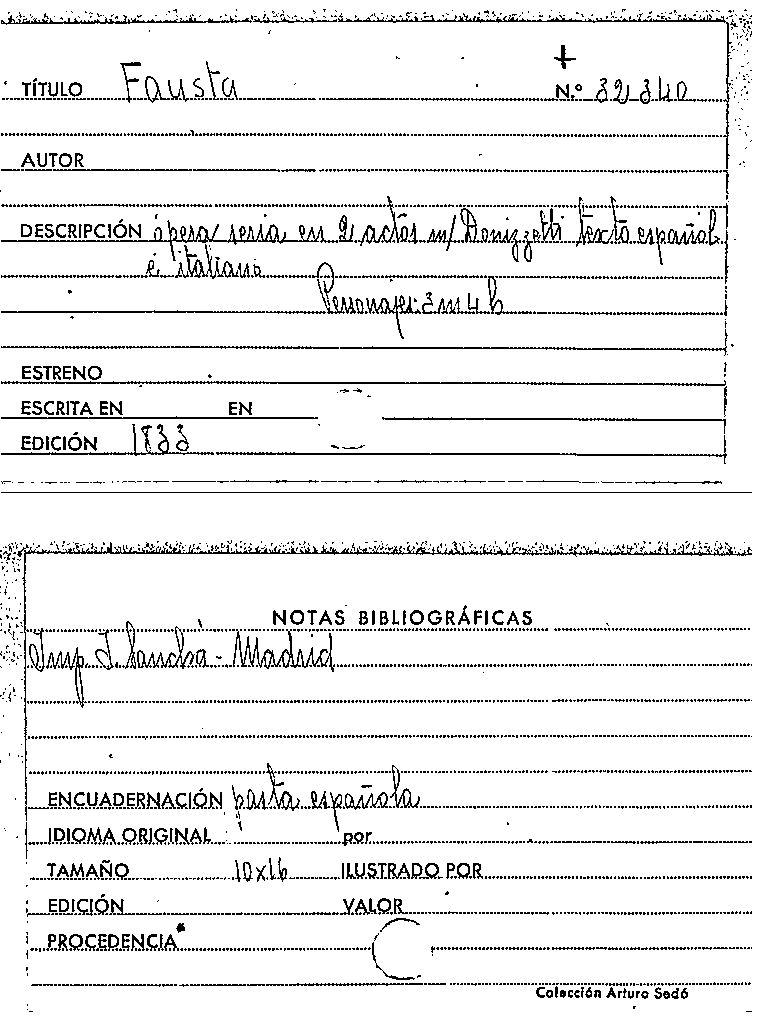 +
TÍTULO Fausta N.º 32340
AUTOR
DESCRIPCIÓN ópera seria en 2 actos m/ Donizzetti texto español
é italiano
Personajes: 3 m 4 h
ESTRENO
ESCRITA EN EN
EDICIÓN 1833
NOTAS BIBLIOGRÁFICAS
Imp I. Sanchá - Madrid
ENCUADERNACIÓN pasta española
IDIOMA ORIGINAL por
TAMAÑO 10x16 ILUSTRADO POR
EDICIÓN VALOR
PROCEDENCIA
Colección Arturo Sedó